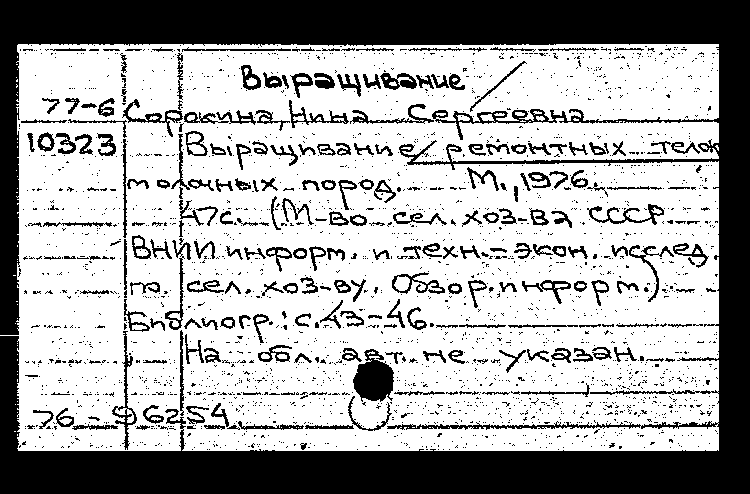 Выращивание
77-6 Сорокина, Нина Сергеевна
10323 Выращивание ремонтных телок
молочных пород. М., 1976.
47с. (М-во сел. хоз-ва СССР.
ВНИИ информ. и техн.-экон. исслед.
по сел. хоз-ву. Обзор. информ.)
Библиогр.: с.43-46.
На обл. авт. не указан.
76-96254